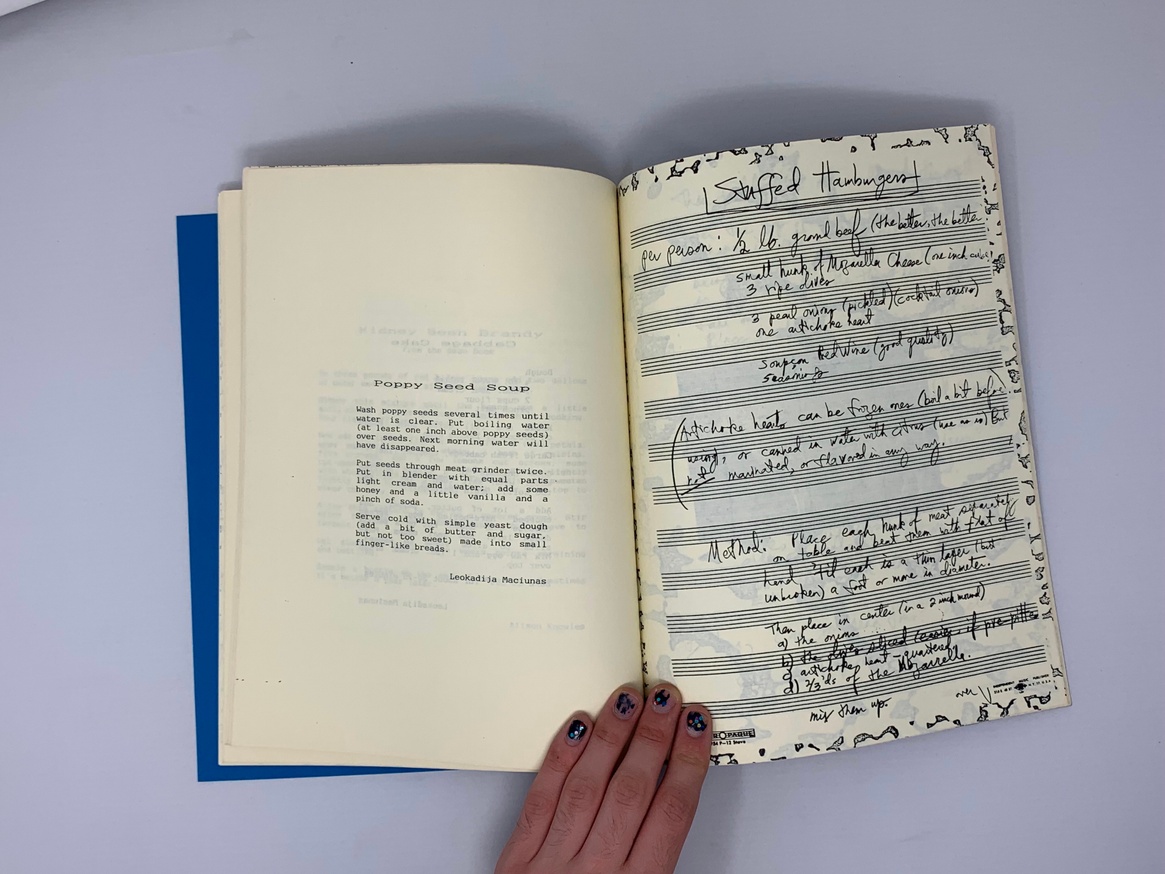 Poppy Seed Soup
Wash poppy seeds several times until
water is clear. Put boiling water
(at least one inch above poppy seeds)
over seeds. Next morning water will
have disappeared.
Put seeds through meat grinder twice.
Put in blender with equal parts
light cream and water; add some
honey and a little vanilla and a
pinch of soda.
Serve cold with simple yeast dough
(add a bit of butter and sugar,
but not too sweet) made into small
finger-like breads.
Leokadija Maciunas
Stuffed Hamburgers
per person: ½ lb. ground beef (the better, the better
small hunk of Mozarella Cheese (one inch cube)
3 ripe olives
3 pearl onions (pickled) (cocktail onions)
one artichoke heart
Red Wine (good quality)
(Artichoke hearts can be frozen ones (boil a bit before
using), or canned in water with citrus (use as is) But
not marinated, or flavored in any way.
Method: Place each hunk of meat separately
on table and beat them with flat of
hand 'til each is a thin layer (but
unbroken) a foot or more in diameter.
Then place in center (in a 2 inch mound)
a) the onions
b) the olives sliced (easier if pre-pitted
c) artichoke heart - quartered
d) 2/3'ds of the Mozarrella.
mix them up.
over